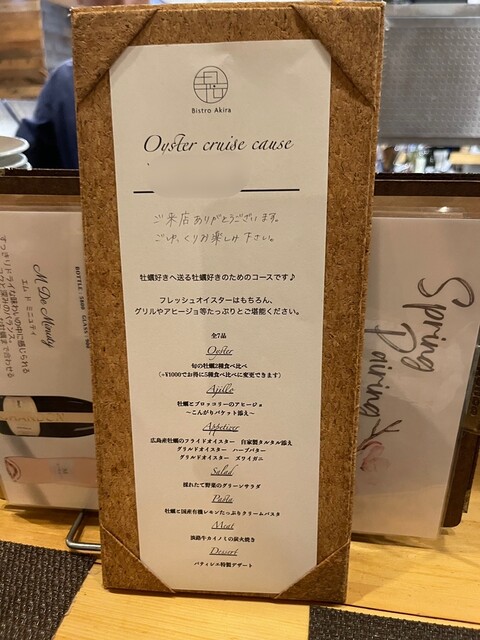 Bistro Akira
Oyster cruise cause
ご来店ありがとうございます。
ごゆっくりお楽しみ下さい。
牡蠣好きへ送る牡蠣好きのためのコースです♪
フレッシュオイスターはもちろん、
グリルやアヒージョ等たっぷりとご堪能ください。
全7品
Oyster
旬の牡蠣2種食べ比べ
(+¥1000でお得に5種食べ比べに変更できます)
Ajillo
牡蠣とブロッコリーのアヒージョ
～こんがりバケット添え～
Appetizer
広島産牡蠣のフライドオイスター 自家製タルタル添え
グリルドオイスター ハーブバター
グリルドオイスター ズワイガニ
Salad
採れたて野菜のグリーンサラダ
Pasta
牡蠣と国産有機レモンたっぷりクリームパスタ
Meat
淡路牛カイノミの炭火焼き
Dessert
パティシエ特製デザート
M De Minuty
エム ド ミニュティ
Spring
Pairing